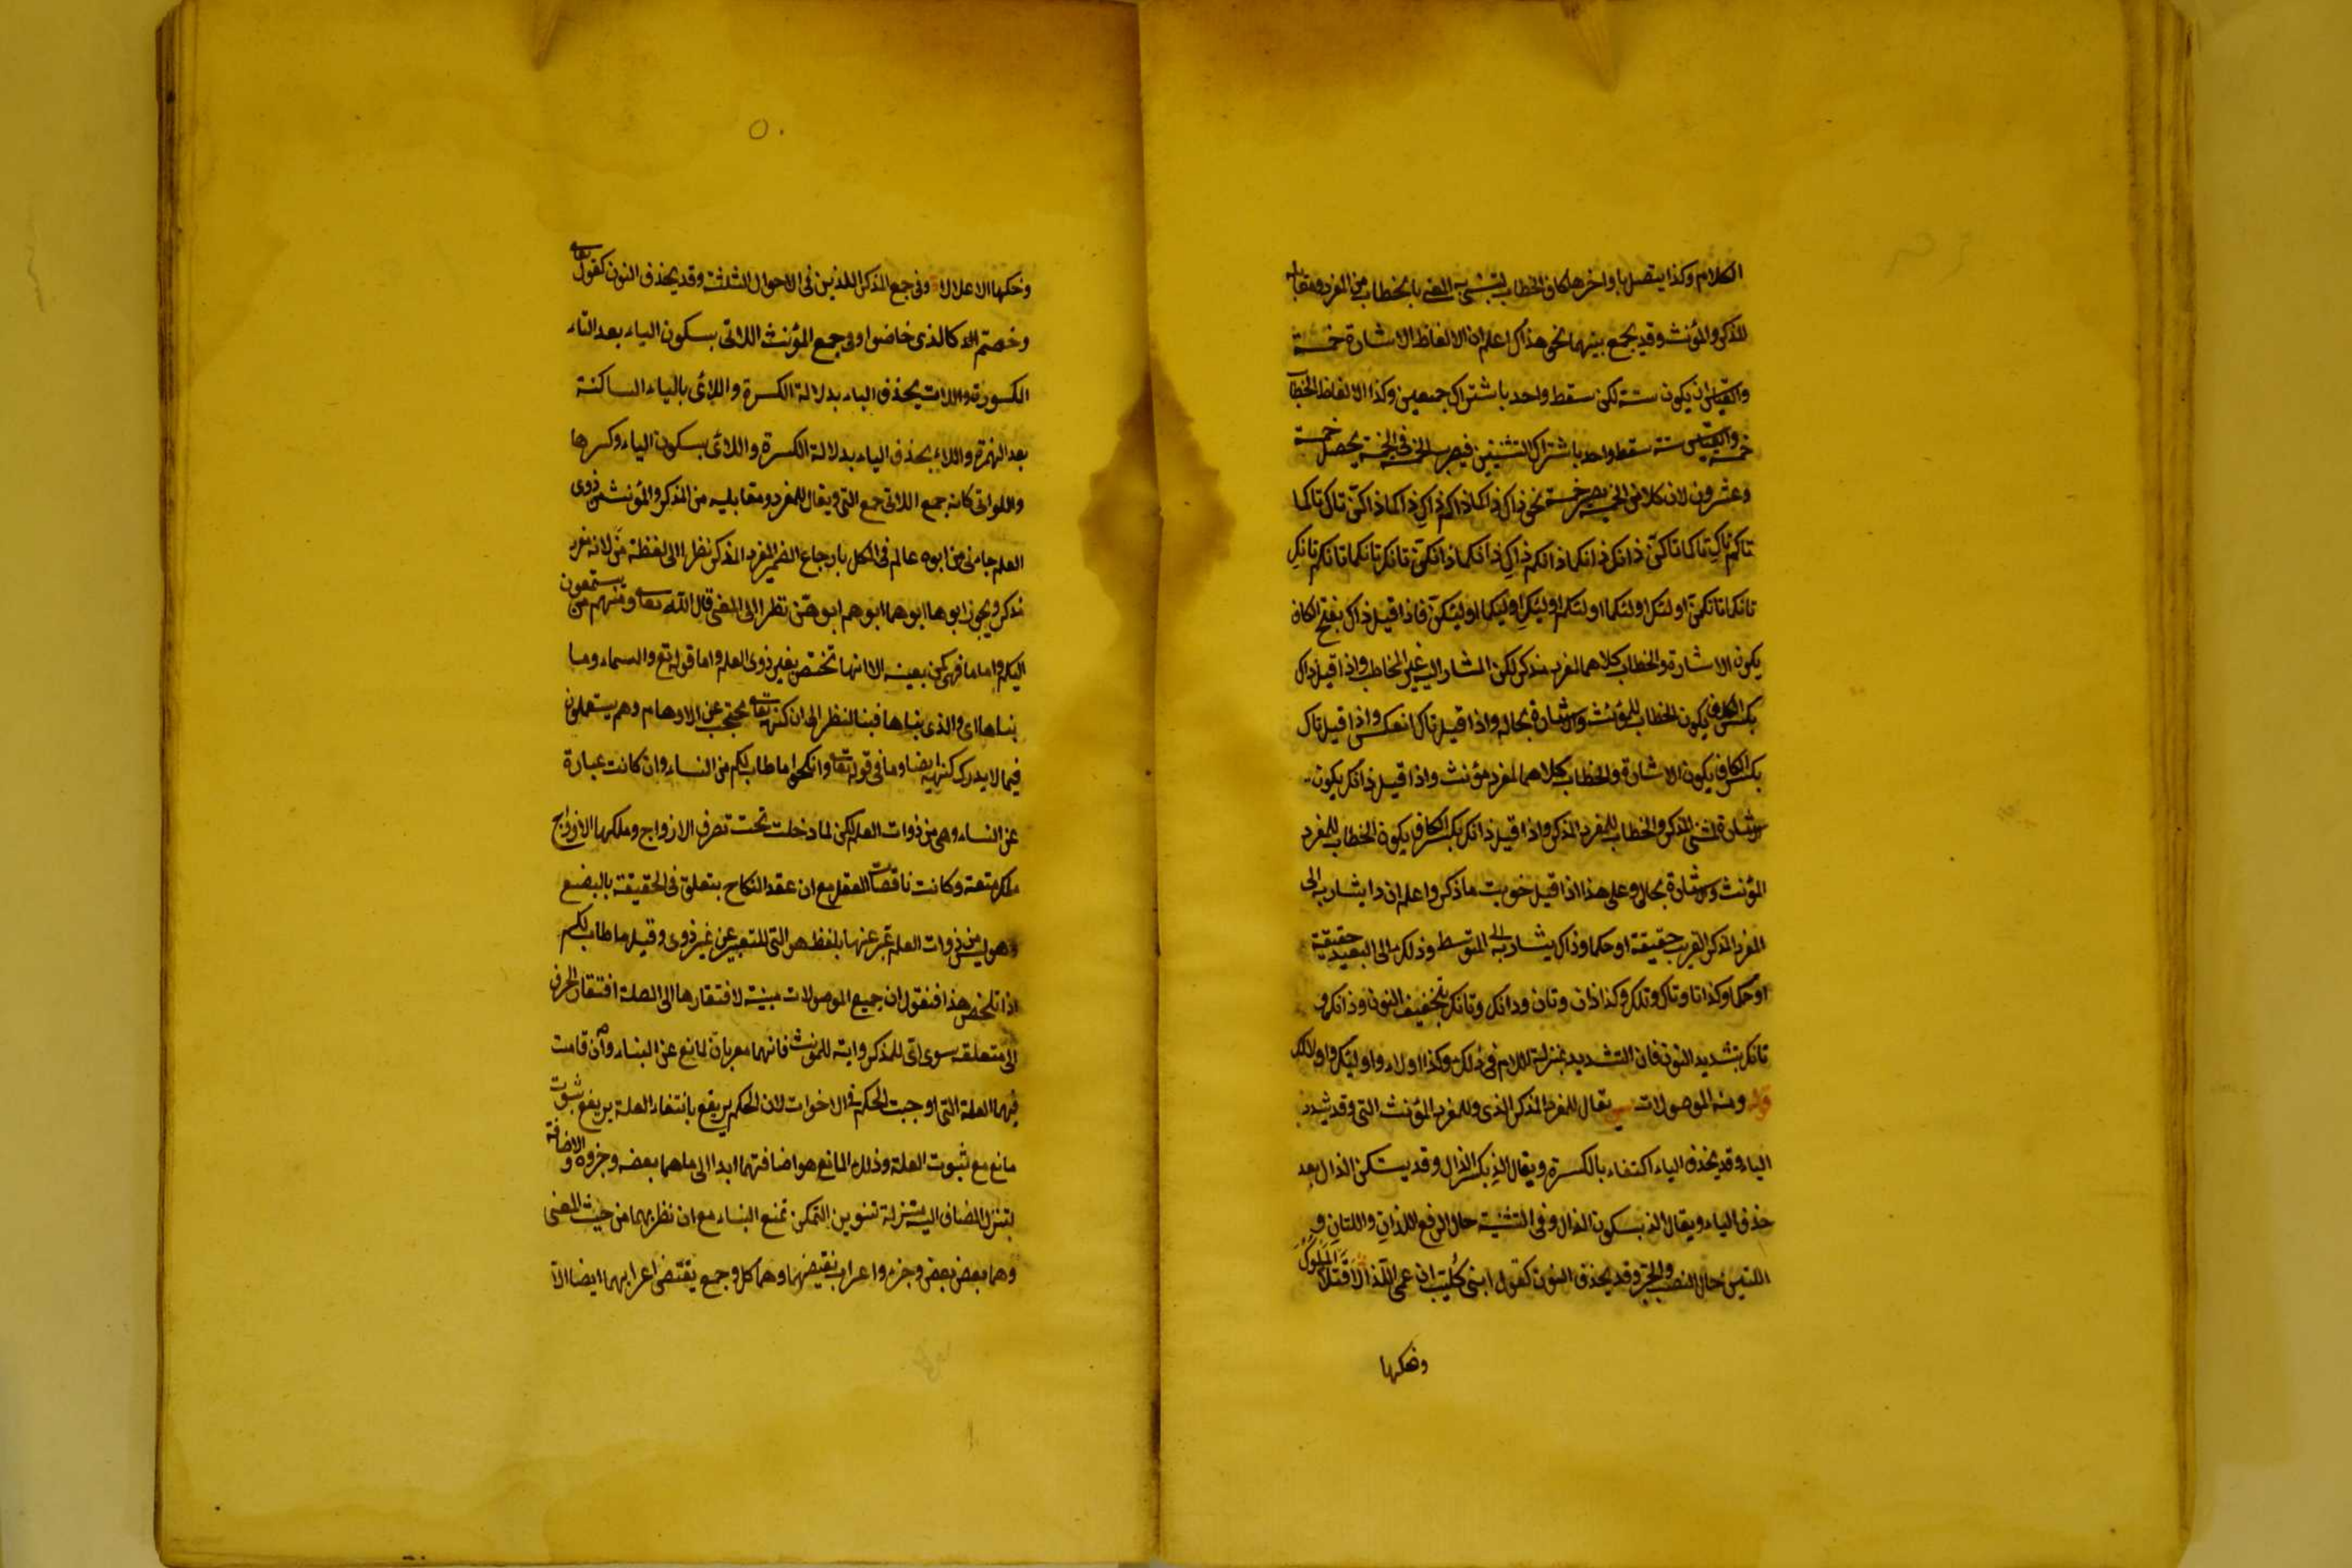 الكلام وكذا يتصل باواخرها كاف الخطاب لتنبيه المعنى بالخطاب من المفرد ومقابليه
للمذكر والمؤنث وقد يجمع بينهما نحو هذاك اعلم ان الالفاظ الاشارة خمسة
والقياس ان يكون ستة لكن سقط واحد باشتراك جمعين وكذا الالفاظ الخطاب
خمسة والقياس ستة سقط واحد باشتراك التثنيتين فيضرب الخمسة في الخمسة يحصل خمسة
وعشرون لان كلا من الخمسة يصير خمسة نحو ذاك ذاكما ذاكم ذاكِ ذاكما ذاكنّ تاك تاكما
تاكم تاكِ تاكما تاكنّ ذانك ذانكما ذانكم ذانكِ ذانكما ذانكنّ تانك تانكما تانكم تانكِ
تانكما تانكنّ اولئك اولئكما اولئكم اولئكِ اولئكما اولئكنّ فاذا قيل ذاك بفتح الكاف
يكون الاشارة والخطاب كلاهما لمفرد مذكر لكن المشار اليه غير المخاطب واذا قيل ذاك
بكسر الكاف يكون الخطاب للمؤنث والاشارة بحاله واذا قيل تاك انعكس واذا قيل تاك
بكسر الكاف يكون الاشارة والخطاب كلاهما لمفرد مؤنث واذا قيل ذانك يكون
الاشارة لمثنى المذكر والخطاب للمفرد المذكر واذا قيل ذانك بكسر الكاف يكون الخطاب للمفرد
المؤنث والاشارة بحاله وعلى هذا اذا قيل ما ذكر واعلم ان ذا يشار به الى
المفرد المذكر القريب حقيقة او حكما وذاك يشار به الى المتوسط وذلك الى البعيد حقيقة
او حكما وكذا تا وتاك وتلك وكذا ذان وتان وذانك وتانك بتخفيف النون وذانك و
تانك بتشديد النون فان التشديد بمنزلة اللام في ذلك وكذا اولاء واولئك واولالك
قوله ومنه الموصولات يقال للمفرد المذكر الذي وللمفرد المؤنث التي وقد يشدد
الياء وقد يحذف الياء اكتفاء بالكسرة ويقال الذِ بكسر الذال وقد يسكن الذال بعد
حذف الياء ويقال الذ بسكون الذال وفي التثنية حال الرفع اللذان واللتان و
اللتين حال النصب والجر وقد يحذف النون كقول ابني كُلَيب ان عمي اللذا قتلا الملوك
وفككا
وفككها الاغلالا وفي جمع المذكر اللذين في الاحوال الثلثة وقد يحذف النون كقوله تعالى
وخضتم كالذي خاضوا وفي جمع المؤنث اللاتي بسكون الياء بعد التاء
المكسورة واللات بحذف الياء بدلالة الكسرة واللائي بالياء الساكنة
بعد الهمزة واللاء بحذف الياء بدلالة الكسرة واللاى بسكون الياء وكسرها
واللواتي كانه جمع اللاتي جمع التي ويقال للمفرد ومقابليه من المذكر والمؤنث من ذوى
العلم جاءني من ابوه عالم في الكل بارجاع الضمير المفرد المذكر نظرا الى لفظة من لانه مفرد
مذكر ويجوز ابوها ابوهما ابوهم ابوهنّ نظرا الى المعنى قال الله تعالى ومنهم من يستمعون
اليك واما ما فهي كمن بعينه الا انها تختص بغير ذوى العلم واما قوله تع والسماء وما
بناها اى والذى بناها فبالنظر الى ان كنهه تعالى محتجب عن الاوهام وهم يستعملون
فيما لا يدرك كنهه ايضا وما في قوله تعالى وانكحوا ما طاب لكم من النساء وان كانت عبارة
عن النساء وهي من ذوات العلم لكن لما دخلت تحت تصرف الازواج وملكها الازواج
ملك متعة وكانت ناقصات العقل مع ان عقد النكاح يتعلق في الحقيقة بالبضع
وهو ليس من ذوات العلم عبّر عنها بلفظ هو التي للتعبير عن غير ذوى وقيل ما طاب لكم
اذا تلخص هذا فنقول ان جميع الموصولات مبنية لافتقارها الى الصلة افتقار الحرف
الى متعلقه سوى اىّ للمذكر واية للمؤنث فانهما معربان لمانع عن البناء وان قامت
فيهما العلة التي اوجبت الحكم في الاخوات لان الحكم يرتفع بانتفاء العلة يرتفع بثبوت
مانع مع ثبوت العلة وذلك المانع هو اضافتهما ابدا الى ما هما بعضه وجزؤه والاضافة
لتنزل المضاف اليه منزلة تنوين التمكن تمنع البناء مع ان نظر بهما من حيث المعنى
وهما بعض بعض وجزء واعراب نقيضهما وهما كل وجمع يقتضي اعرابهما ايضا الا